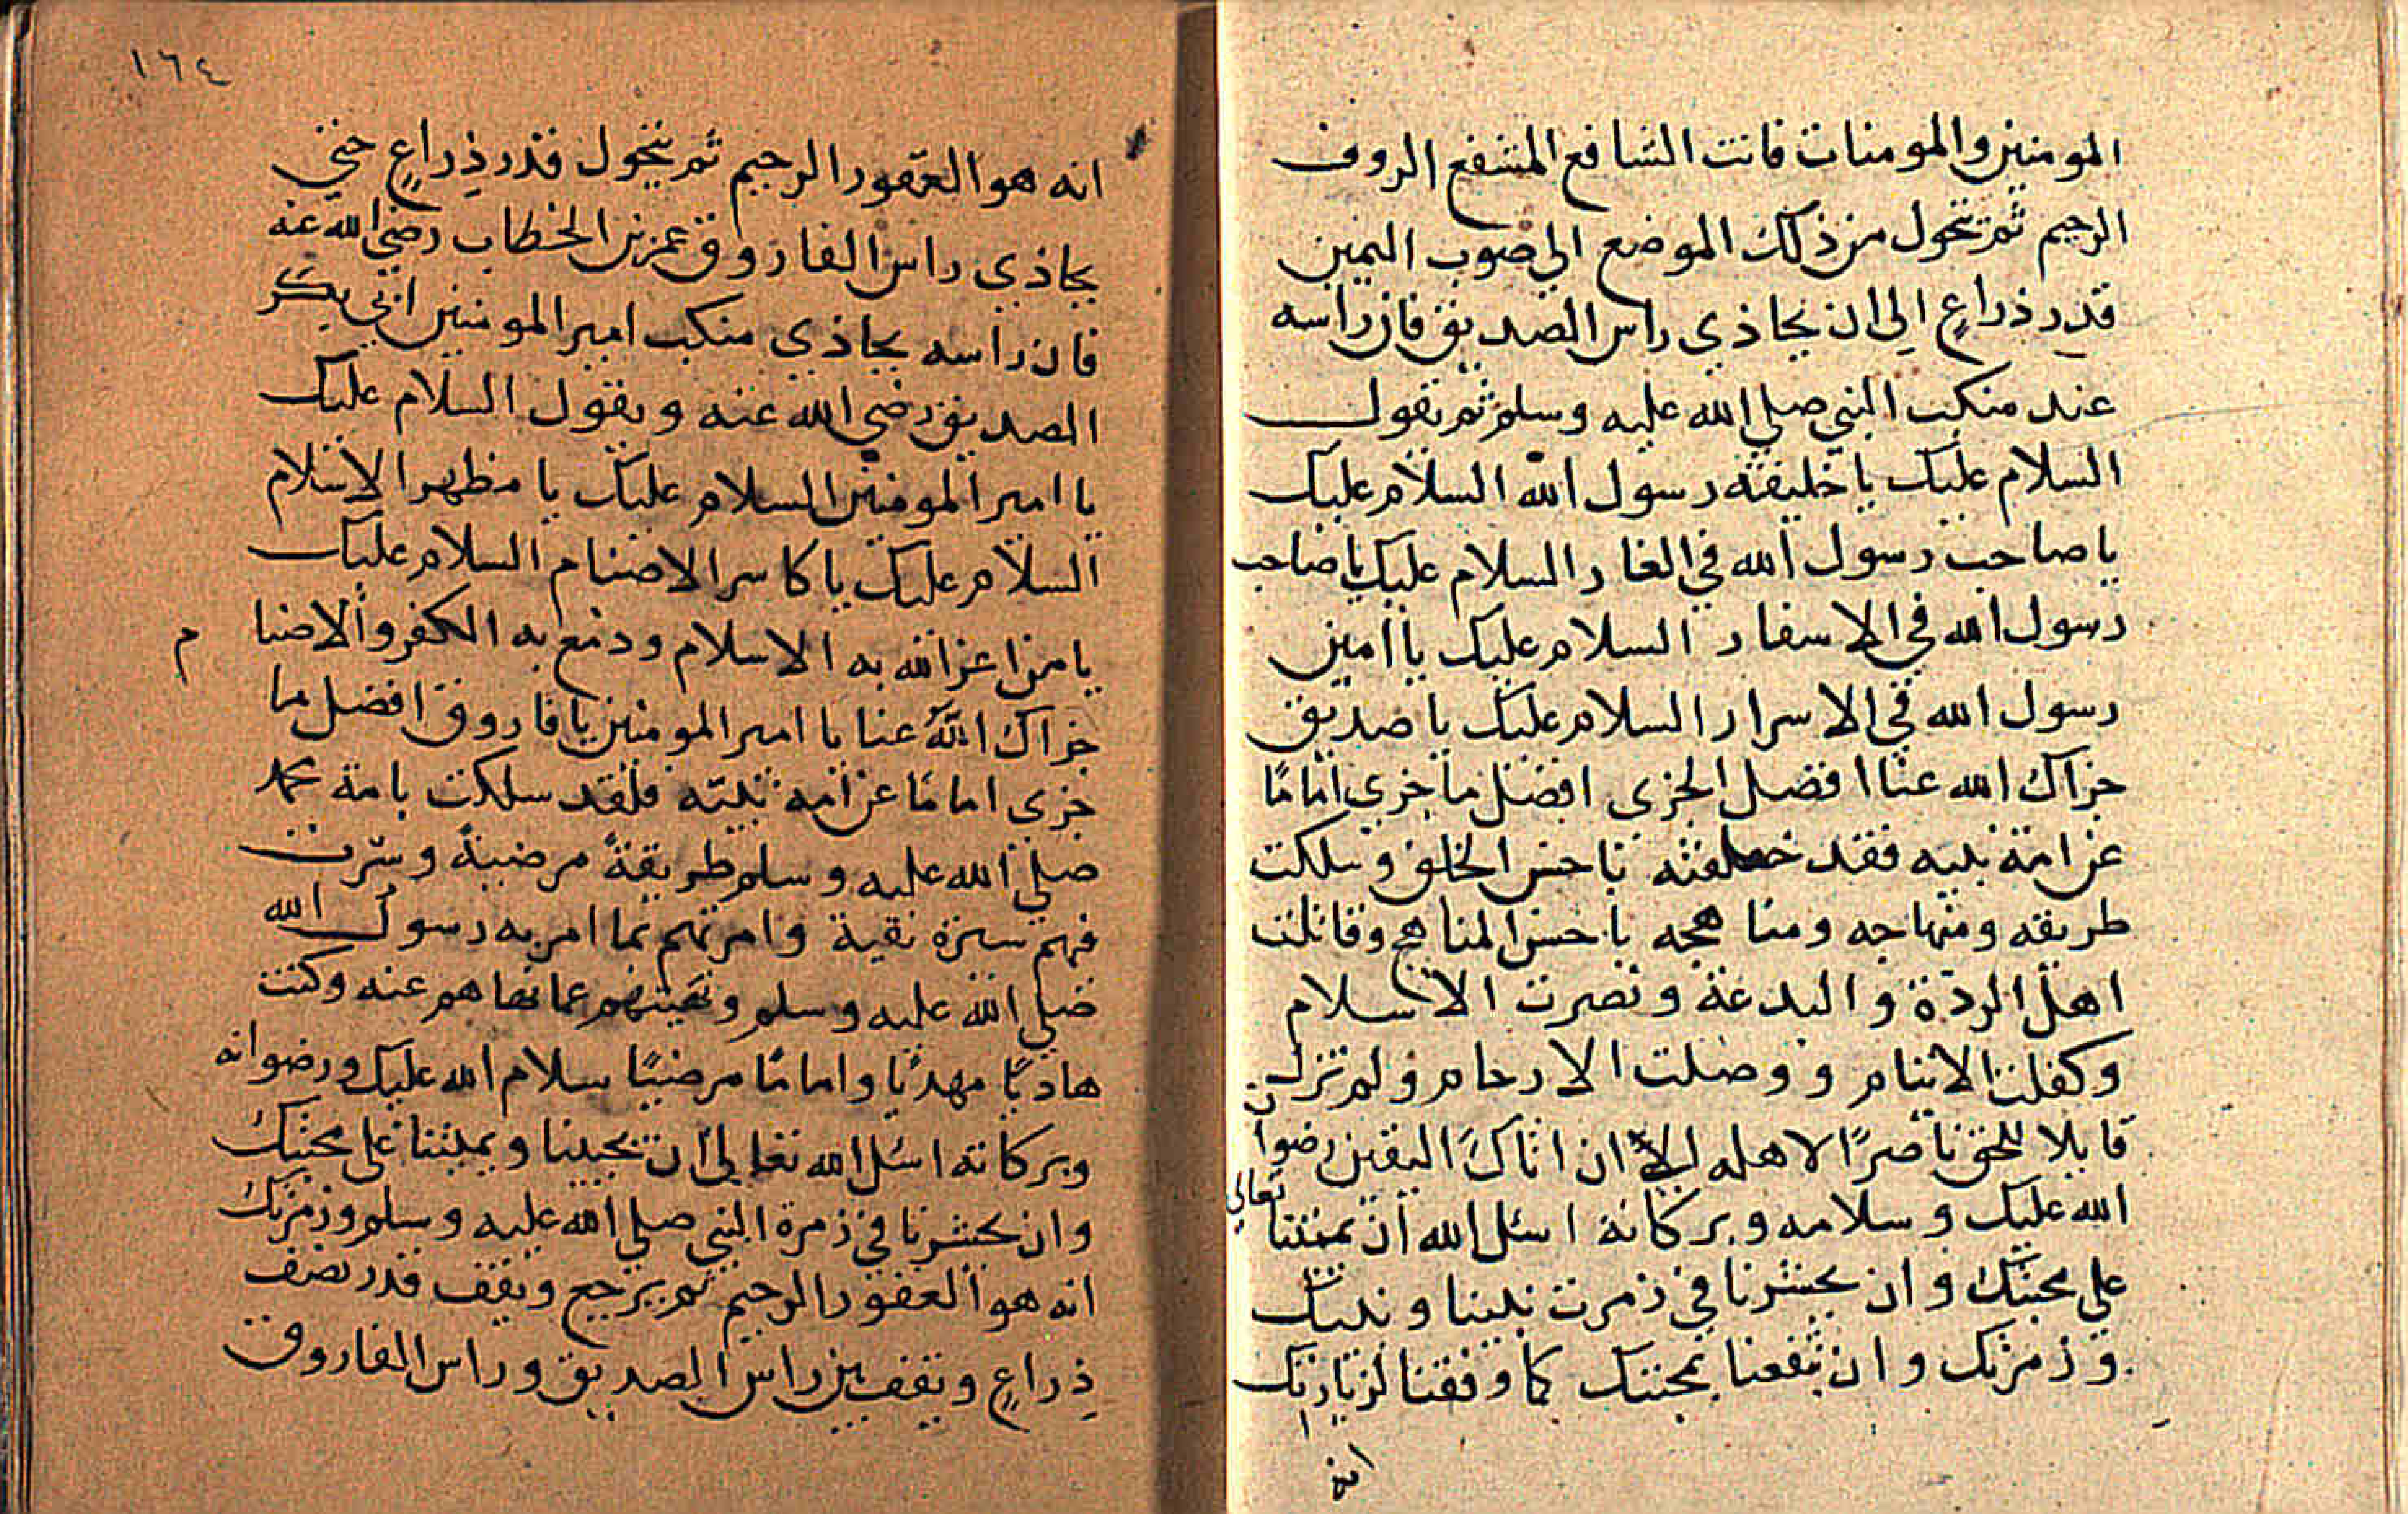 المومنين والمومنات فانت الشافع المشفع الروف
الرحيم ثم تتحول من ذلك الموضع الى صوب اليمين
قدر ذراع الى ان يحاذي راس الصديق فان راسه
عند منكب النبي صلى الله عليه وسلم ثم تقول
السلام عليك يا خليفة رسول الله السلام عليك
يا صاحب رسول الله في الغار السلام عليك يا صاحب
رسول الله في الاسفار السلام عليك يا امين
رسول الله في الاسرار السلام عليك يا صديق
جزاك الله عنا افضل الجزى افضل ما جزي امامًا
عن امة نبيه فقد خلفته باحسن الخلف وسلكت
طريقه ومنهاجه ومناهجه باحسن المناهج وقاتلت
اهل الردّة والبدعة ونصرت الاسلام
وكفلت الايتام ووصلت الارحام ولم تزل
قايلا للحق ناصرًا لاهله الى ان اتاك اليقين رضوان
الله عليك وسلامه وبركاته اسئل الله تعالى ان يميتنا
على محبتك وان يحشرنا في زمرت نبينا ونبيك
وزمرتك وان ينفعنا بمحبتك كما وفقنا لزيارتك
انه
١٦٤
انه هو الغفور الرحيم ثم يتحول قدر ذِراعٍ حتي
يحاذي راس الفاروق عمر بن الخطاب رضي الله عنه
فان راسه يحاذي منكب امير المومنين ابي بكر
الصديق رضي الله عنه ويقول السلام عليك
يا امير المومنين السلام عليك يا مظهر الاسلام
السلام عليك يا كاسر الاصنام السلام عليك
يا من اعز الله به الاسلام ودمغ به الكفر والاصنام
جزاك اللهُ عنا يا امير المومنين يا فاروق افضل ما
جزي امامًا عن امة نبيّه فلقد سلكت بامة محمد
صلى الله عليه وسلم طريقةً مرضيةً وسِرْت
فيهم سيرة نقية وامرتهم بما امر به رسول الله
صلى الله عليه وسلم ونهيتهم عما نهاهم عنه وكنت
هاديًا مهديًا وامامًا مرضيًا سلام الله عليك ورضوانه
وبركاته اسئل الله تعالى ان يحيينا ويميتنا على محبتك
وان يحشرنا في زمرة النبي صلى الله عليه وسلم وزمرتك
انه هو الغفور الرحيم ثم يرجع ويقف قدر نصف
ذِراعٍ ويقف بين راس الصديق وراس الفاروق